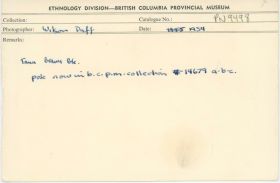 ETHNOLOGY DIVISION—BRITISH COLUMBIA PROVINCIAL MUSEUM
Collection: Catalogue No.: PN9498
Photographer: Wilson Duff Date: 1954
Remarks:
pole now in b.c.p.m. collection #14679 a-b-c.